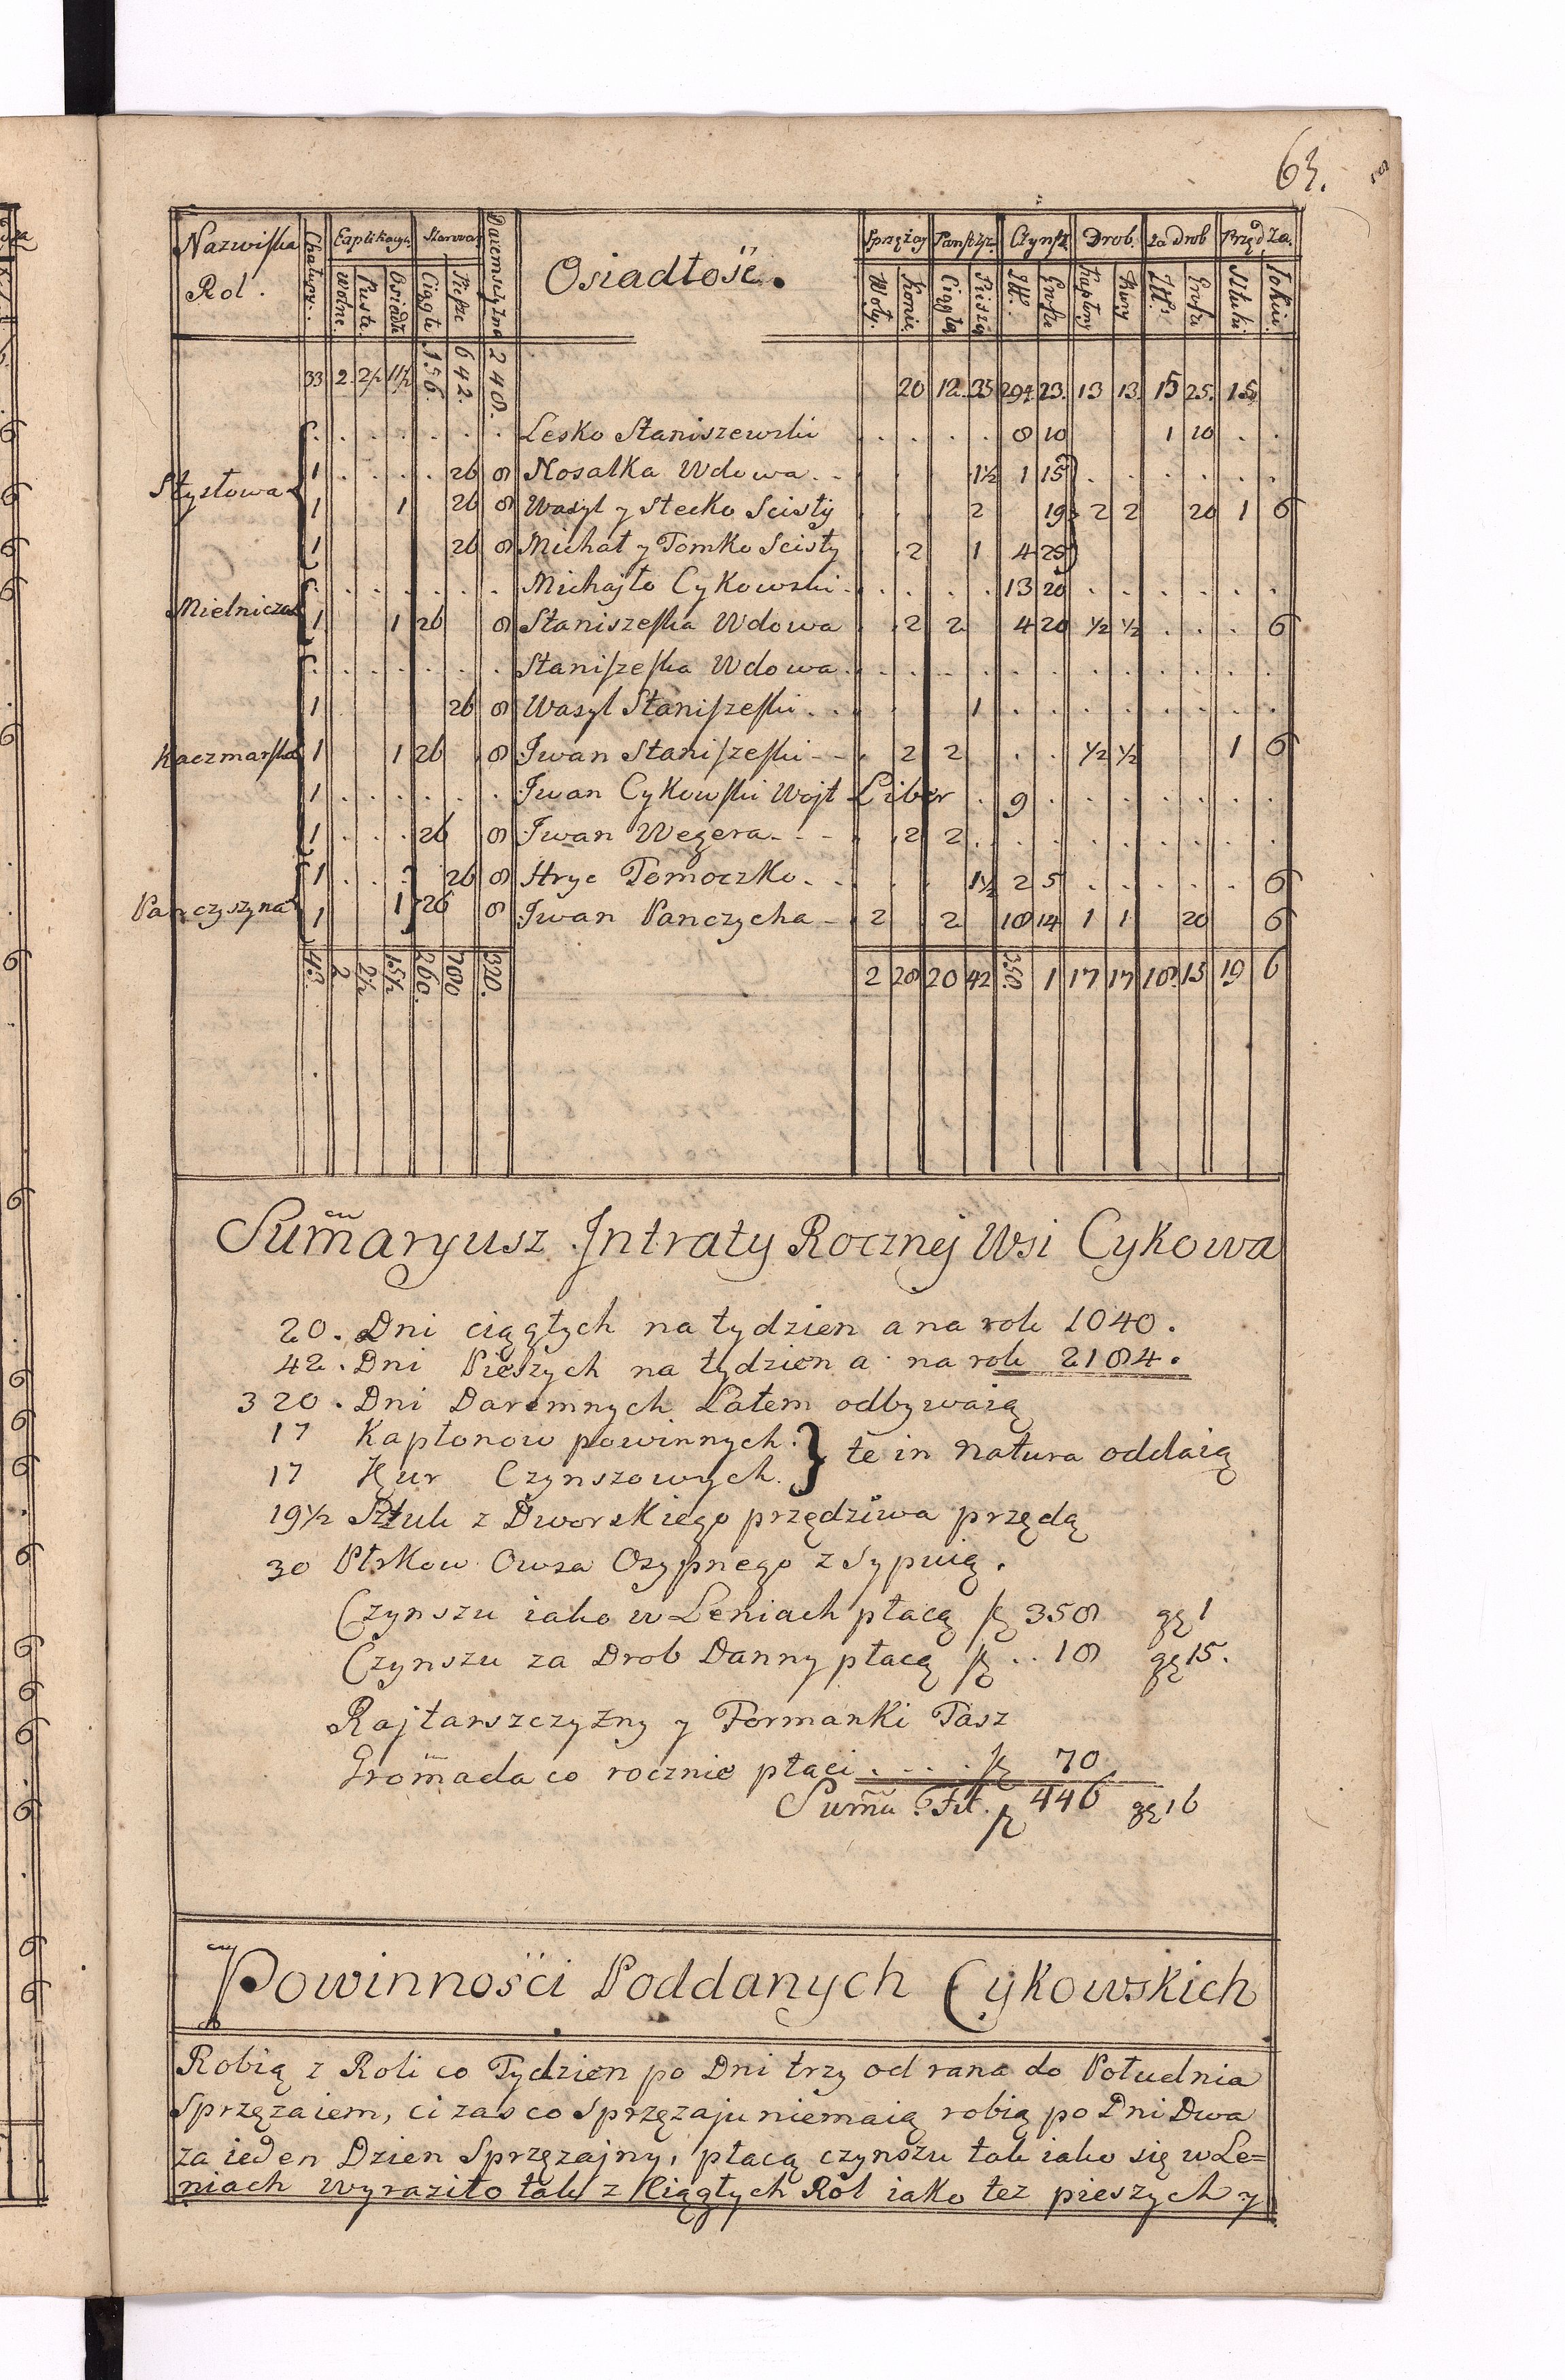 63.
Nazwiska Rol. Chałupy. Explikacya Starowa Daremszyzna Osiadłość. Sprzężaj Pańszz. Czynsz Drob. Za Drob Przędza.
Wolne. Puste. Osiadłe Ciągłe Piesze Woły. Konie Ciągłą Pieszą Zł. Grosze Kapłony Kury Zł. Grosze Sztuki Łokcie
33 2 2½ 11½ 156. 642. 248. 20 12 35 294 23. 13 13. 15 25. 18
. . . . . . . Lesko Staniszewski . . . . . 8 10 1 10 . .
1 . . . . 26 8 Nosalka Wdowa . . 1½ 1 15 . . . . . .
Stysłowa 1 1 26 8 Wasyl y Stecko Scisły 2 19 2 2 20 1 6
1 26 8 Michał y Tomko Scisły 2 1 4 25
. . . . . . . Michajło Cykowski . . . . . 13 20 . . . . . .
Mielnicza 1 1 26 8 Staniszeska Wdowa 2 2 4 20 ½ ½ . . . 6
. . . . . . . Staniszeska Wdowa . . . . . . . . . . . . .
1 26 8 Wasyl Staniszeski . . 1 . . . . . . . .
Kaczmarska 1 1 26 8 Iwan Staniszeski - - 2 2 . . ½ ½ 1 6
1 . . . . . . Iwan Cykowski Wojt Liber . 9 . . . . . . .
1 . . . 26 8 Iwan Wegera - - - 2 2 . . . . . . . . .
1 . . . 26 8 Hryc Tomoczko . . 1½ 2 5 . . . . . 6
Panczyszna 1 1 26 8 Iwan Panczycha - 2 2 18 14 1 1 20 6
43. 2 2½ 15½ 260. 780 320. 2 28 20 42 358. 1 17 17 18. 15 19 6
Summaryusz Intraty Rocznej Wsi Cykowa
20. Dni ciągłych na tydzien a na rok 1040.
42. Dni Pieszych na tydzien a na rok 2184.
320. Dni Daremnych Latem odbywaią
17 Kapłonow powinnych. } te in natura oddaią
17 Kur Czynszowych.
19½ Sztuk z Dworskiego przędziwa przędą
30 Płskow Owsa Osypnego zsypuią.
Czynszu iako w Leniach płacą fł 358 gr 1
Czynszu za Drob Danny płacą fł .. 18 gr 15.
Rajtarszczyzny y Formanki Tasz
Gromada co rocznie płaci . . . . fł 70
Summa Fit. fł 446 gr 16
Powinności Poddanych Cykowskich
Robią z Roli co Tydzien po Dni trzy od rana do Południa
Sprzęzaiem, ci zas co Sprzęzaju niemaią robią po Dni Dwa
za ieden Dzien Sprzęzajny, płacą czynszu tak iako się w Le=
niach wyraziło tak z Ciągłych Rol iako tez pieszych y